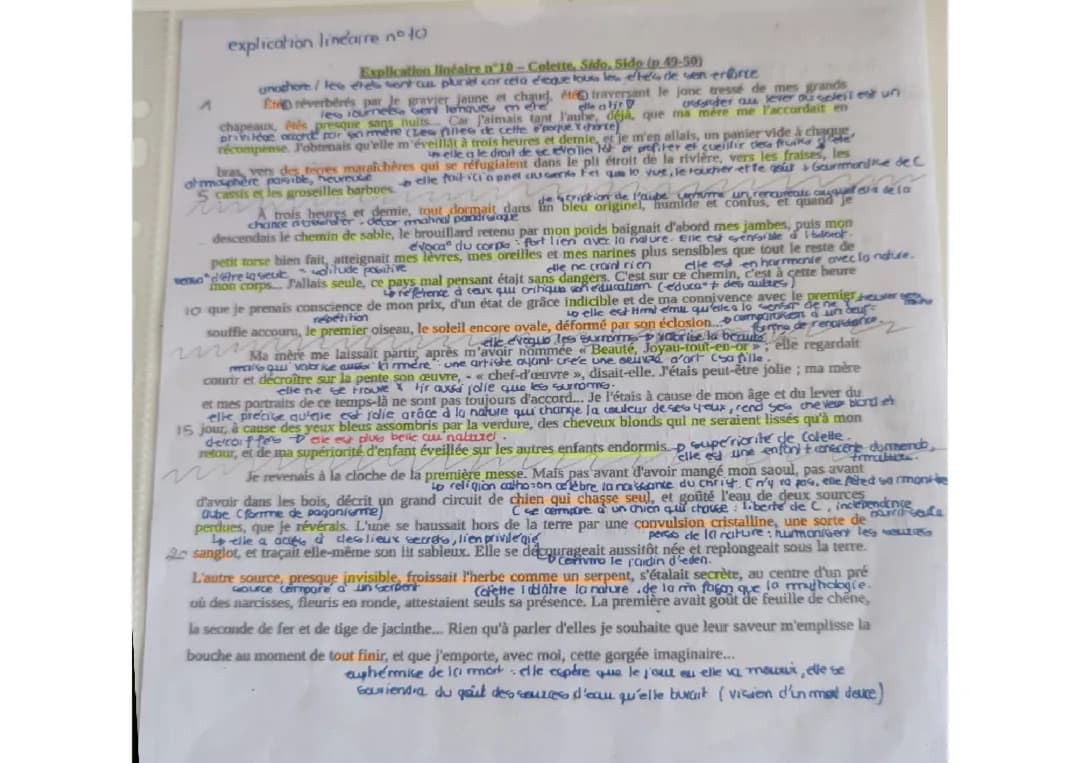 explication linéaire n°10
Explication linéaire n°10 – Colette, Sido, Sido (p 49-50)
anaphore / les étés sont au pluriel car cela évoque tous les étés de son enfance
Étés réverbérés par le gravier jaune et chaud, étés traversant le jonc tressé de mes grands
les journées sont longues en été
assister au lever du soleil est un
chapeaux, étés presque sans nuits... Car j'aimais tant l'aube, déjà, que ma mère me l'accordait en
privilège accordé par sa mère (les filles de cette époque
récompense. J'obtenais qu'elle m'éveillât à trois heures et demie, et je m'en allais, un panier vide à chaque
elle a le droit de se réveiller tôt pr profiter et cueillir des fruits d'été
bras, vers des terres maraîchères qui se réfugiaient dans le pli étroit de la rivière, vers les fraises, les
atmosphère paisible, heureuse
elle fait ici appel au sens tel que la vue, le toucher et le goût + Gourmandise de C
5 cassis et les groseilles barbues.
description de l'aube comme un renouveau auquel elle a la
À trois heures et demie, tout dormait dans un bleu originel, humide et confus, et quand je
chance d'assister. décor matinal paradisiaque
descendais le chemin de sable, le brouillard retenu par mon poids baignait d'abord mes jambes, puis mon
évoca° du corps : fort lien avec la nature. Elle est sensible à
petit torse bien fait, atteignait mes lèvres, mes oreilles et mes narines plus sensibles que tout le reste de
d'être la seule = solitude positive
elle ne craint rien
elle est en harmonie avec la nature.
mon corps... J'allais seule, ce pays mal pensant était sans dangers. C'est sur ce chemin, c'est à cette heure
référence à ceux qui critique son éducation (éduca° + des autres)
10 que je prenais conscience de mon prix, d'un état de grâce indicible et de ma connivence avec le premier
répétition
comparaison à un oeuf
souffle accouru, le premier oiseau, le soleil encore ovale, déformé par son éclosion...
forme de renaissance.
elle évoque les surnoms → valorise la beauté
Ma mère me laissait partir, après m'avoir nommée « Beauté, Joyau-tout-en-or » ; elle regardait
mais qui valorise aussi la mère : une artiste ayant crée une oeuvre d'art (sa fille.
courir et décroître sur la pente son œuvre, - « chef-d'œuvre », disait-elle. J'étais peut-être jolie ; ma mère
elle ne se trouve x tjr aussi jolie que les surnoms.
et mes portraits de ce temps-là ne sont pas toujours d'accord... Je l'étais à cause de mon âge et du lever du
elle précise qu'elle est jolie grâce à la nature qui change la couleur de ses yeux, rend ses cheveux blond et
15 jour, à cause des yeux bleus assombris par la verdure, des cheveux blonds qui ne seraient lissés qu'à mon
décoiffés → elle est plus belle au naturel.
retour, et de ma supériorité d'enfant éveillée sur les autres enfants endormis.
supériorité de Colette.
elle est une enfant
Je revenais à la cloche de la première messe. Mais pas avant d'avoir mangé mon saoul, pas avant
religion catho: on célèbre la naissance du christ. C n'y va pas, elle
d'avoir dans les bois, décrit un grand circuit de chien qui chasse seul, et goûté l'eau de deux sources
aube (forme de paganisme)
C se compare à un chien qui chasse : liberté de C, indépendance
perdues, que je révérais. L'une se haussait hors de la terre par une convulsion cristalline, une sorte de
elle a accès à des lieux secrets, lien privilégié
perso de la nature : humanisent les sources
20 sanglot, et traçait elle-même son lit sableux. Elle se décourageait aussitôt née et replongeait sous la terre.
comme le jardin d'eden.
L'autre source, presque invisible, froissait l'herbe comme un serpent, s'étalait secrète, au centre d'un pré
source comparé à un serpent
Colette idolâtre la nature, de la m̂ façon que la mythologie.
où des narcisses, fleuris en ronde, attestaient seuls sa présence. La première avait goût de feuille de chêne,
la seconde de fer et de tige de jacinthe... Rien qu'à parler d'elles je souhaite que leur saveur m'emplisse la
bouche au moment de tout finir, et que j'emporte, avec moi, cette gorgée imaginaire...
euphémise de la mort : elle espère que le jour ou elle va mourir, elle se
souviendra du goût des sources d'eau qu'elle buvait (vision d'un mort douce)